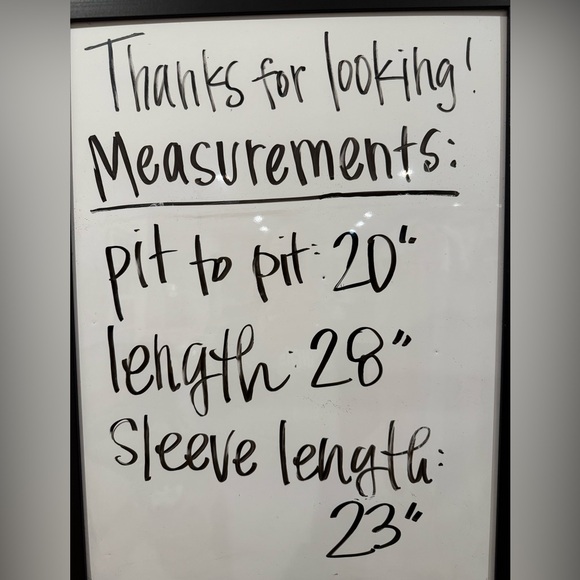 Thanks for looking!
Measurements:
pit to pit: 20"
length: 28"
Sleeve length:
23"